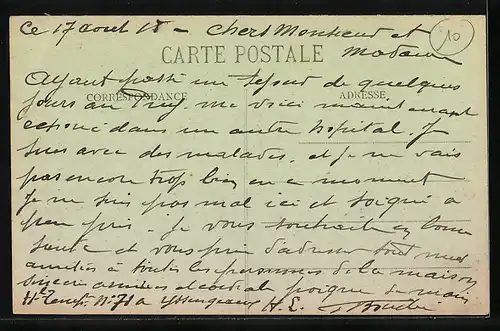 Ce 17 aout 18 - Chers Monsieur et
Madame
10
CARTE POSTALE
CORRESPONDANCE
ADRESSE
Ayant passé un séjour de quelques
jours au Puy me voici maintenant
echoué dans un autre hopital. Je
suis avec des malades. et je ne vais
pas encore trop bien en ce moment
Je ne suis pas mal ici et soigné a
peu près. Je vous souhaite en bonne
santé et vous prie d'adresser tout mes
amitiés à toutes les personnes de la maison
sincères amitiés et cordiale poignée de main
Hal Temp. N: 71 a Yssingeaux H. L.